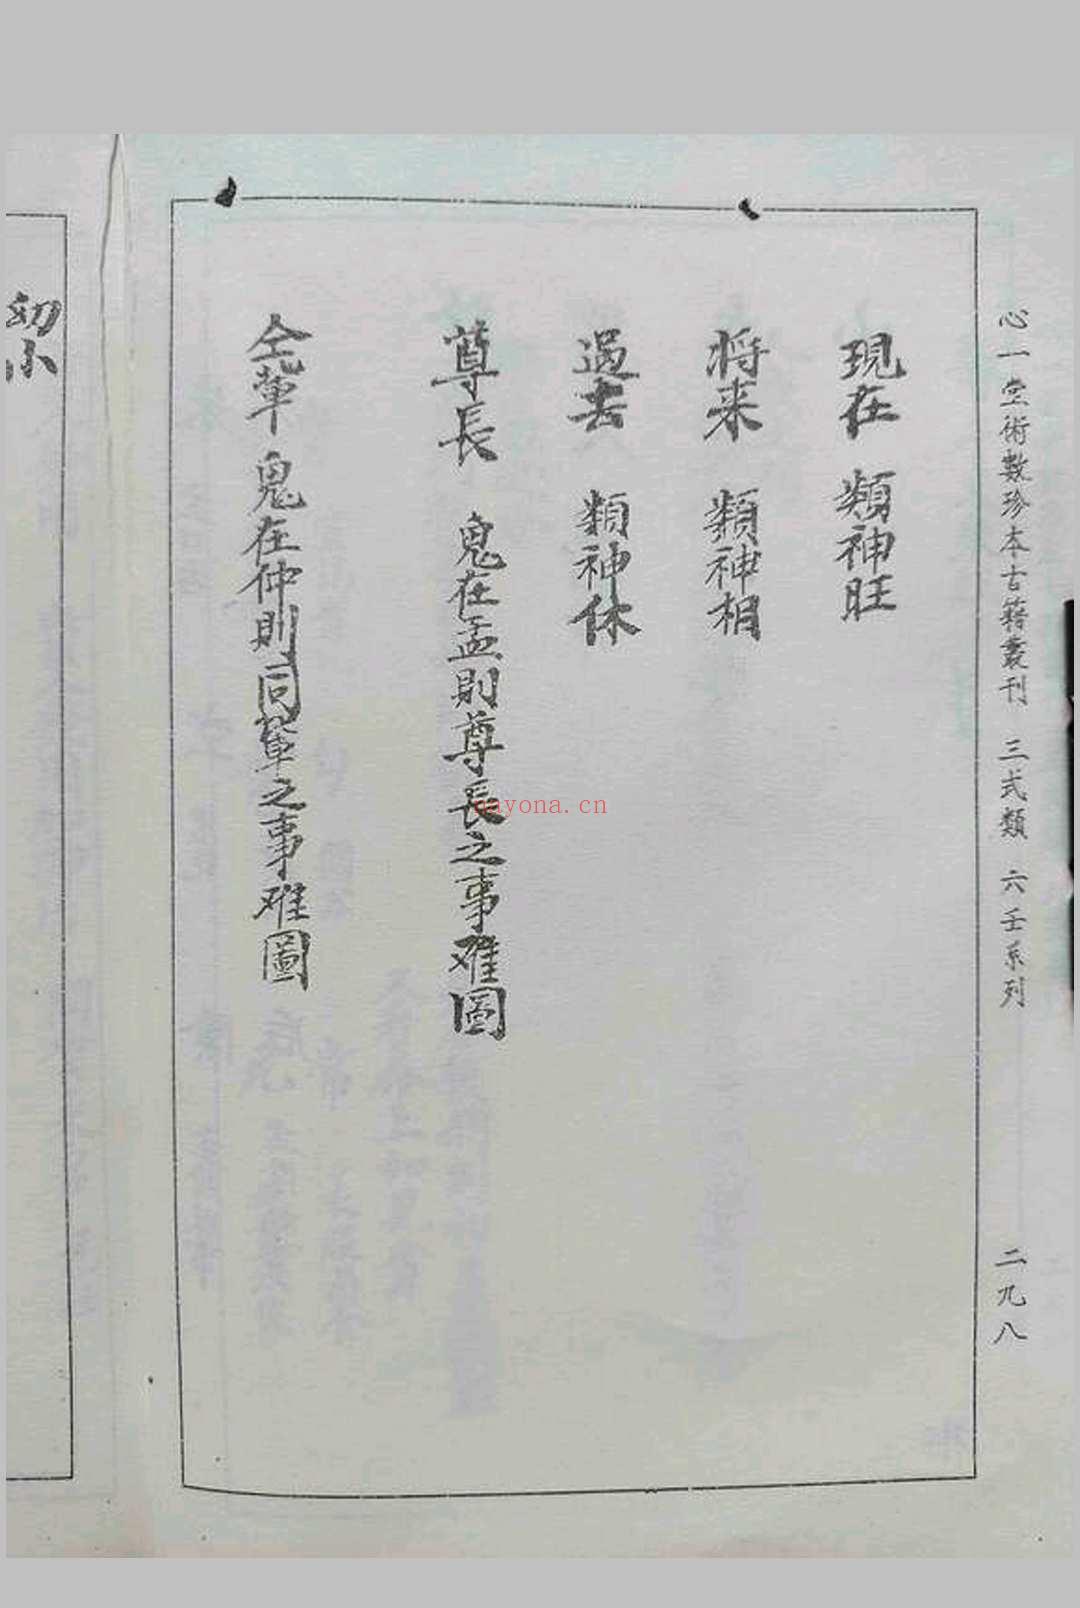 心一堂術數珍本古籍叢刊 三式類 六壬系列
二九八
現在 類神旺
将来 類神相
過去 類神休
尊長 鬼在孟則尊長之事难圖
仝輩 鬼在仲則同輩之事难圖
幼小
nayona.cn